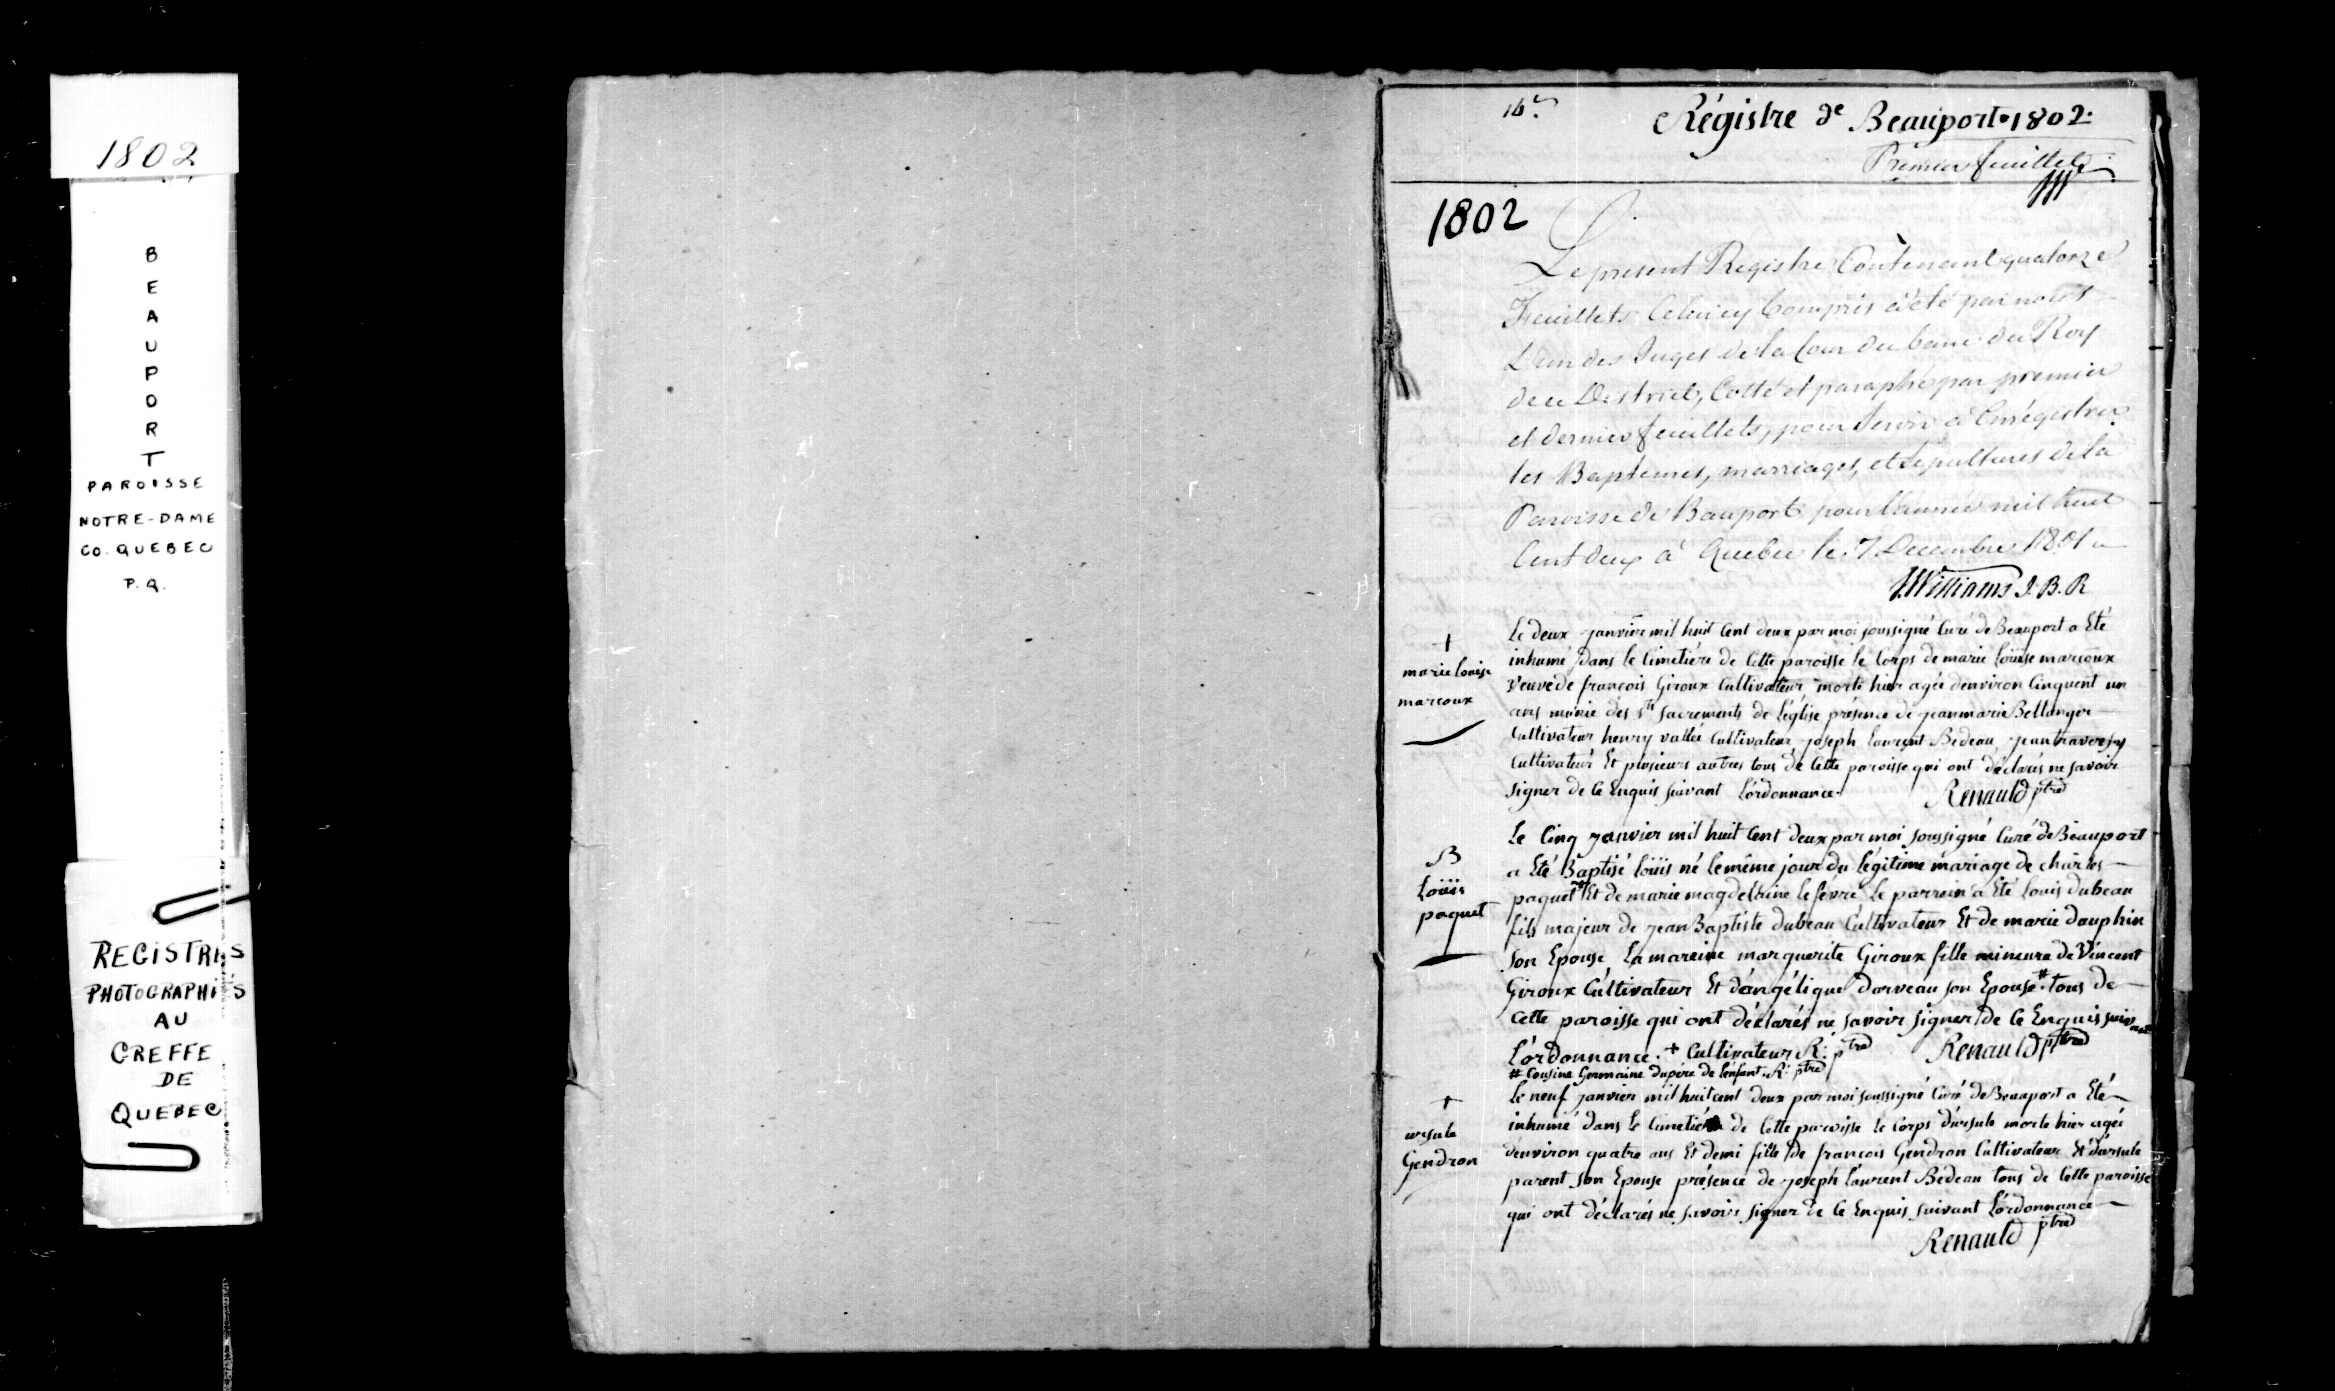 1802
B
E
A
U
P
O
R
T
PAROISSE
NOTRE-DAME
CO. QUEBEC
P.Q.
REGISTRES
PHOTOGRAPHIÉS
AU
GREFFE
DE
QUEBEC
Régistre de Beauport. 1802.
Premier feuillet
1802
Le present Registre Contenant quatorze
Feuillets Celuicy Compris a été par nous
L'un des Juges de la Cour du banc du Roy
de ce District, Cotté et paraphé par premier
et dernier feuillets, pour Servir à Enrégistrer
les Baptemes, marriages, et Sepultures de la
Paroisse de Bauport pour l'année mil huit
Cent deux à Quebec le 7 Decembre 1801
J Williams J. B. R
+
marie louise
marcoux
Le deux janvier mil huit Cent deux par moi soussigné Curé de Beauport a Eté
inhumé dans le Cimetiére de Cette paroisse le Corps de marie loüise marcoux
Veuve de françois Giroux Cultivateur morte hier agée denviron Cinquent un
ans munie des Sts sacrements de L'église présence de jean marie Bellanger
Cultivateur henry vallée Cultivateur joseph laurent Bédeau jean traversy
Cultivateur Et plusieurs autres tous de Cette paroisse qui ont déclarés ne savoir
signer de Ce Enquis suivant L'ordonnance.
Renauld ptre
B
Loüis
paquet
Le Cinq janvier mil huit Cent deux par moi soussigné Curé de Beauport
a Eté Baptisé loüis né le même jour du légitime mariage de charles
paquet + Et de marie magdeleine lefevre le parrein a Eté louis dubeau
fils majeur de jean Baptiste dubeau Cultivateur Et de marie dauphin
son Epouse La mareine marguerite Giroux fille mineure de Vincent
Giroux Cultivateur Et d'angélique darveau son Epouse # tous de
Cette paroisse qui ont déclarés ne savoir signer de Ce Enquis suivant
L'ordonnance. + Cultivateur R: ptre
Renauld ptre
# Cousine Germaine du pére de l'enfant. R: ptre
+
ursule
Gendron
Le neuf janvier mil huit cent deux par moi soussigné Curé de Beauport a Eté
inhumé dans le Cimetiére de Cette paroisse le Corps d'ursule morte hier agée
denviron quatre ans Et demi fille de françois Gendron Cultivateur Et d'ursule
parent son Epouse présence de joseph laurent Bédeau tous de Cette paroisse
qui ont déclarés ne savoir signer de Ce Enquis suivant L'ordonnance
Renauld ptre